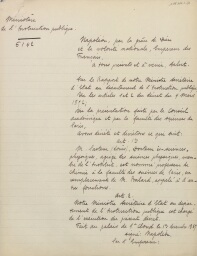 Ministère
de l'Instruction publique
Napoléon, par la grâce de Dieu
et la volonté nationale, Empereur des
Français,
A tous présents et à venir, salut.
Sur le rapport de notre Ministre secrétaire
d'Etat au département de l'Instruction publique
Vu les articles 1 et 2 du décret du 9 mars
1852,
Vu la présentation faite par le Conseil
académique et par la faculté des sciences de
Paris,
Avons décrété et décrétons ce qui suit:
Art. 1er
M. Pasteur (Louis), Docteur ès sciences,
physiques, agrégé des sciences physiques, membre
de l'Institut, est nommé professeur de
chimie à la faculté des sciences de Paris,
en remplacement de M. Balard, appelé à d'autres
fonctions.
Art. 2
Notre Ministre secrétaire d'Etat au département
de l'Instruction publique est chargé
de l'exécution du présent décret.
Fait au palais de
signé Napoléon
Par l'Empereur.